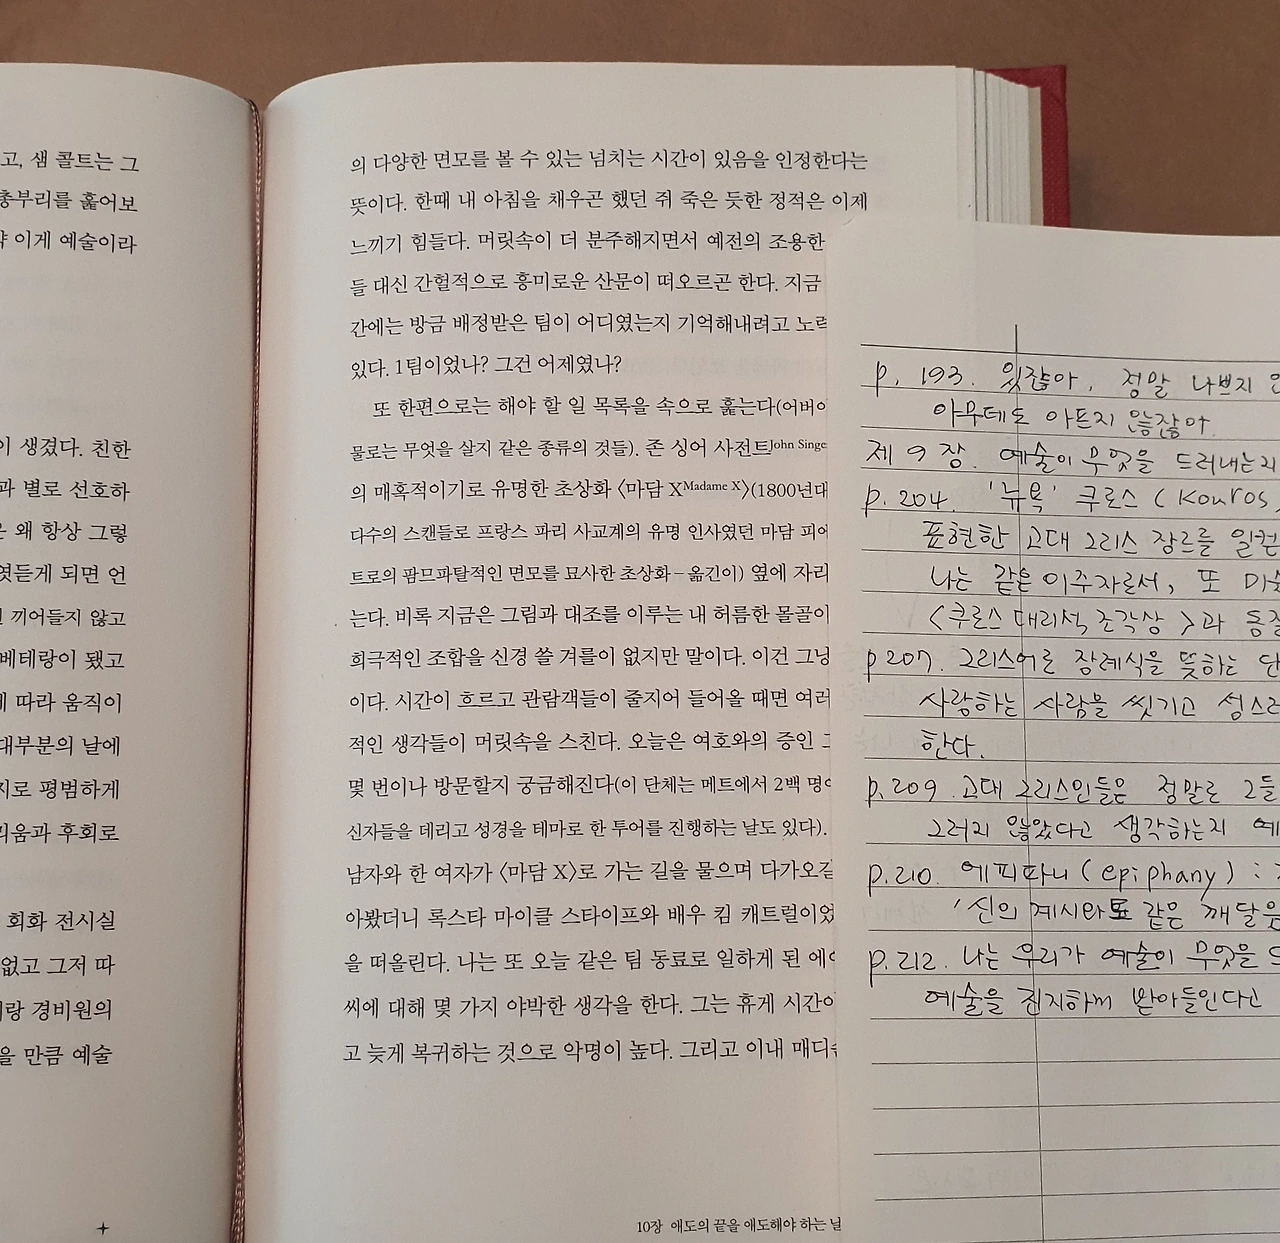 고, 샘 콜트는 그
총부리를 훑어보
이게 예술이라
이 생겼다. 친한
과 별로 선호하
왜 항상 그렇
엿듣게 되면 언
끼어들지 않고
베테랑이 됐고
따라 움직이
대부분의 날에
지로 평범하게
리움과 후회로
회화 전시실
없고 그저 따
경비원의
을 만큼 예술
의 다양한 면모를 볼 수 있는 넘치는 시간이 있음을 인정한다는
뜻이다. 한때 내 아침을 채우곤 했던 쥐 죽은 듯한 정적은 이제
느끼기 힘들다. 머릿속이 더 분주해지면서 예전의 조용한
들 대신 간헐적으로 흥미로운 산문이 떠오르곤 한다. 지금
간에는 방금 배정받은 팀이 어디였는지 기억해내려고 노력
있다. 1팀이었나? 그건 어제였나?
또 한편으로는 해야 할 일 목록을 속으로 훑는다(어버이
물로는 무엇을 살지 같은 종류의 것들). 존 싱어 사전트John Singe
의 매혹적이기로 유명한 초상화 〈마담 XMadame X〉(1800년대
다수의 스캔들로 프랑스 파리 사교계의 유명 인사였던 마담 피에
트로의 팜므파탈적인 면모를 묘사한 초상화–옮긴이) 옆에 자리
는다. 비록 지금은 그림과 대조를 이루는 내 허름한 몰골이
희극적인 조합을 신경 쓸 겨를이 없지만 말이다. 이건 그냥
이다. 시간이 흐르고 관람객들이 줄지어 들어올 때면 여러
적인 생각들이 머릿속을 스친다. 오늘은 여호와의 증인
몇 번이나 방문할지 궁금해진다(이 단체는 메트에서 2백 명이
신자들을 데리고 성경을 테마로 한 투어를 진행하는 날도 있다).
남자와 한 여자가 〈마담 X〉로 가는 길을 물으며 다가오길
아봤더니 록스타 마이클 스타이프와 배우 킴 캐트럴이었
을 떠올린다. 나는 또 오늘 같은 팀 동료로 일하게 된 에이
씨에 대해 몇 가지 야박한 생각을 한다. 그는 휴게 시간이
고 늦게 복귀하는 것으로 악명이 높다. 그리고 이내 매디슨
10장 애도의 끝을 애도해야 하는 날
p. 193. 있잖아, 정말 나쁘지 않
아무데도 아프지 않잖아.
제 9장. 예술이 무엇을 드러내는지
p. 204. '뉴욕' 쿠로스 (Kouros,
표현한 고대 그리스 장르를 일컫
나는 같은 이주자로서, 또 미술
<쿠로스 대리석 조각상>과 동질
p 207. 그리스어로 장례식을 뜻하는 단
사랑하는 사람을 씻기고 성스러
한다.
p. 209. 고대 그리스인들은 정말로 그들
그러지 않았다고 생각하는지 예
p. 210. 에피파니(epiphany) :
'신의 계시와도 같은 깨달음
p. 212. 나는 우리가 예술이 무엇을 드
예술을 진지하게 받아들인다고